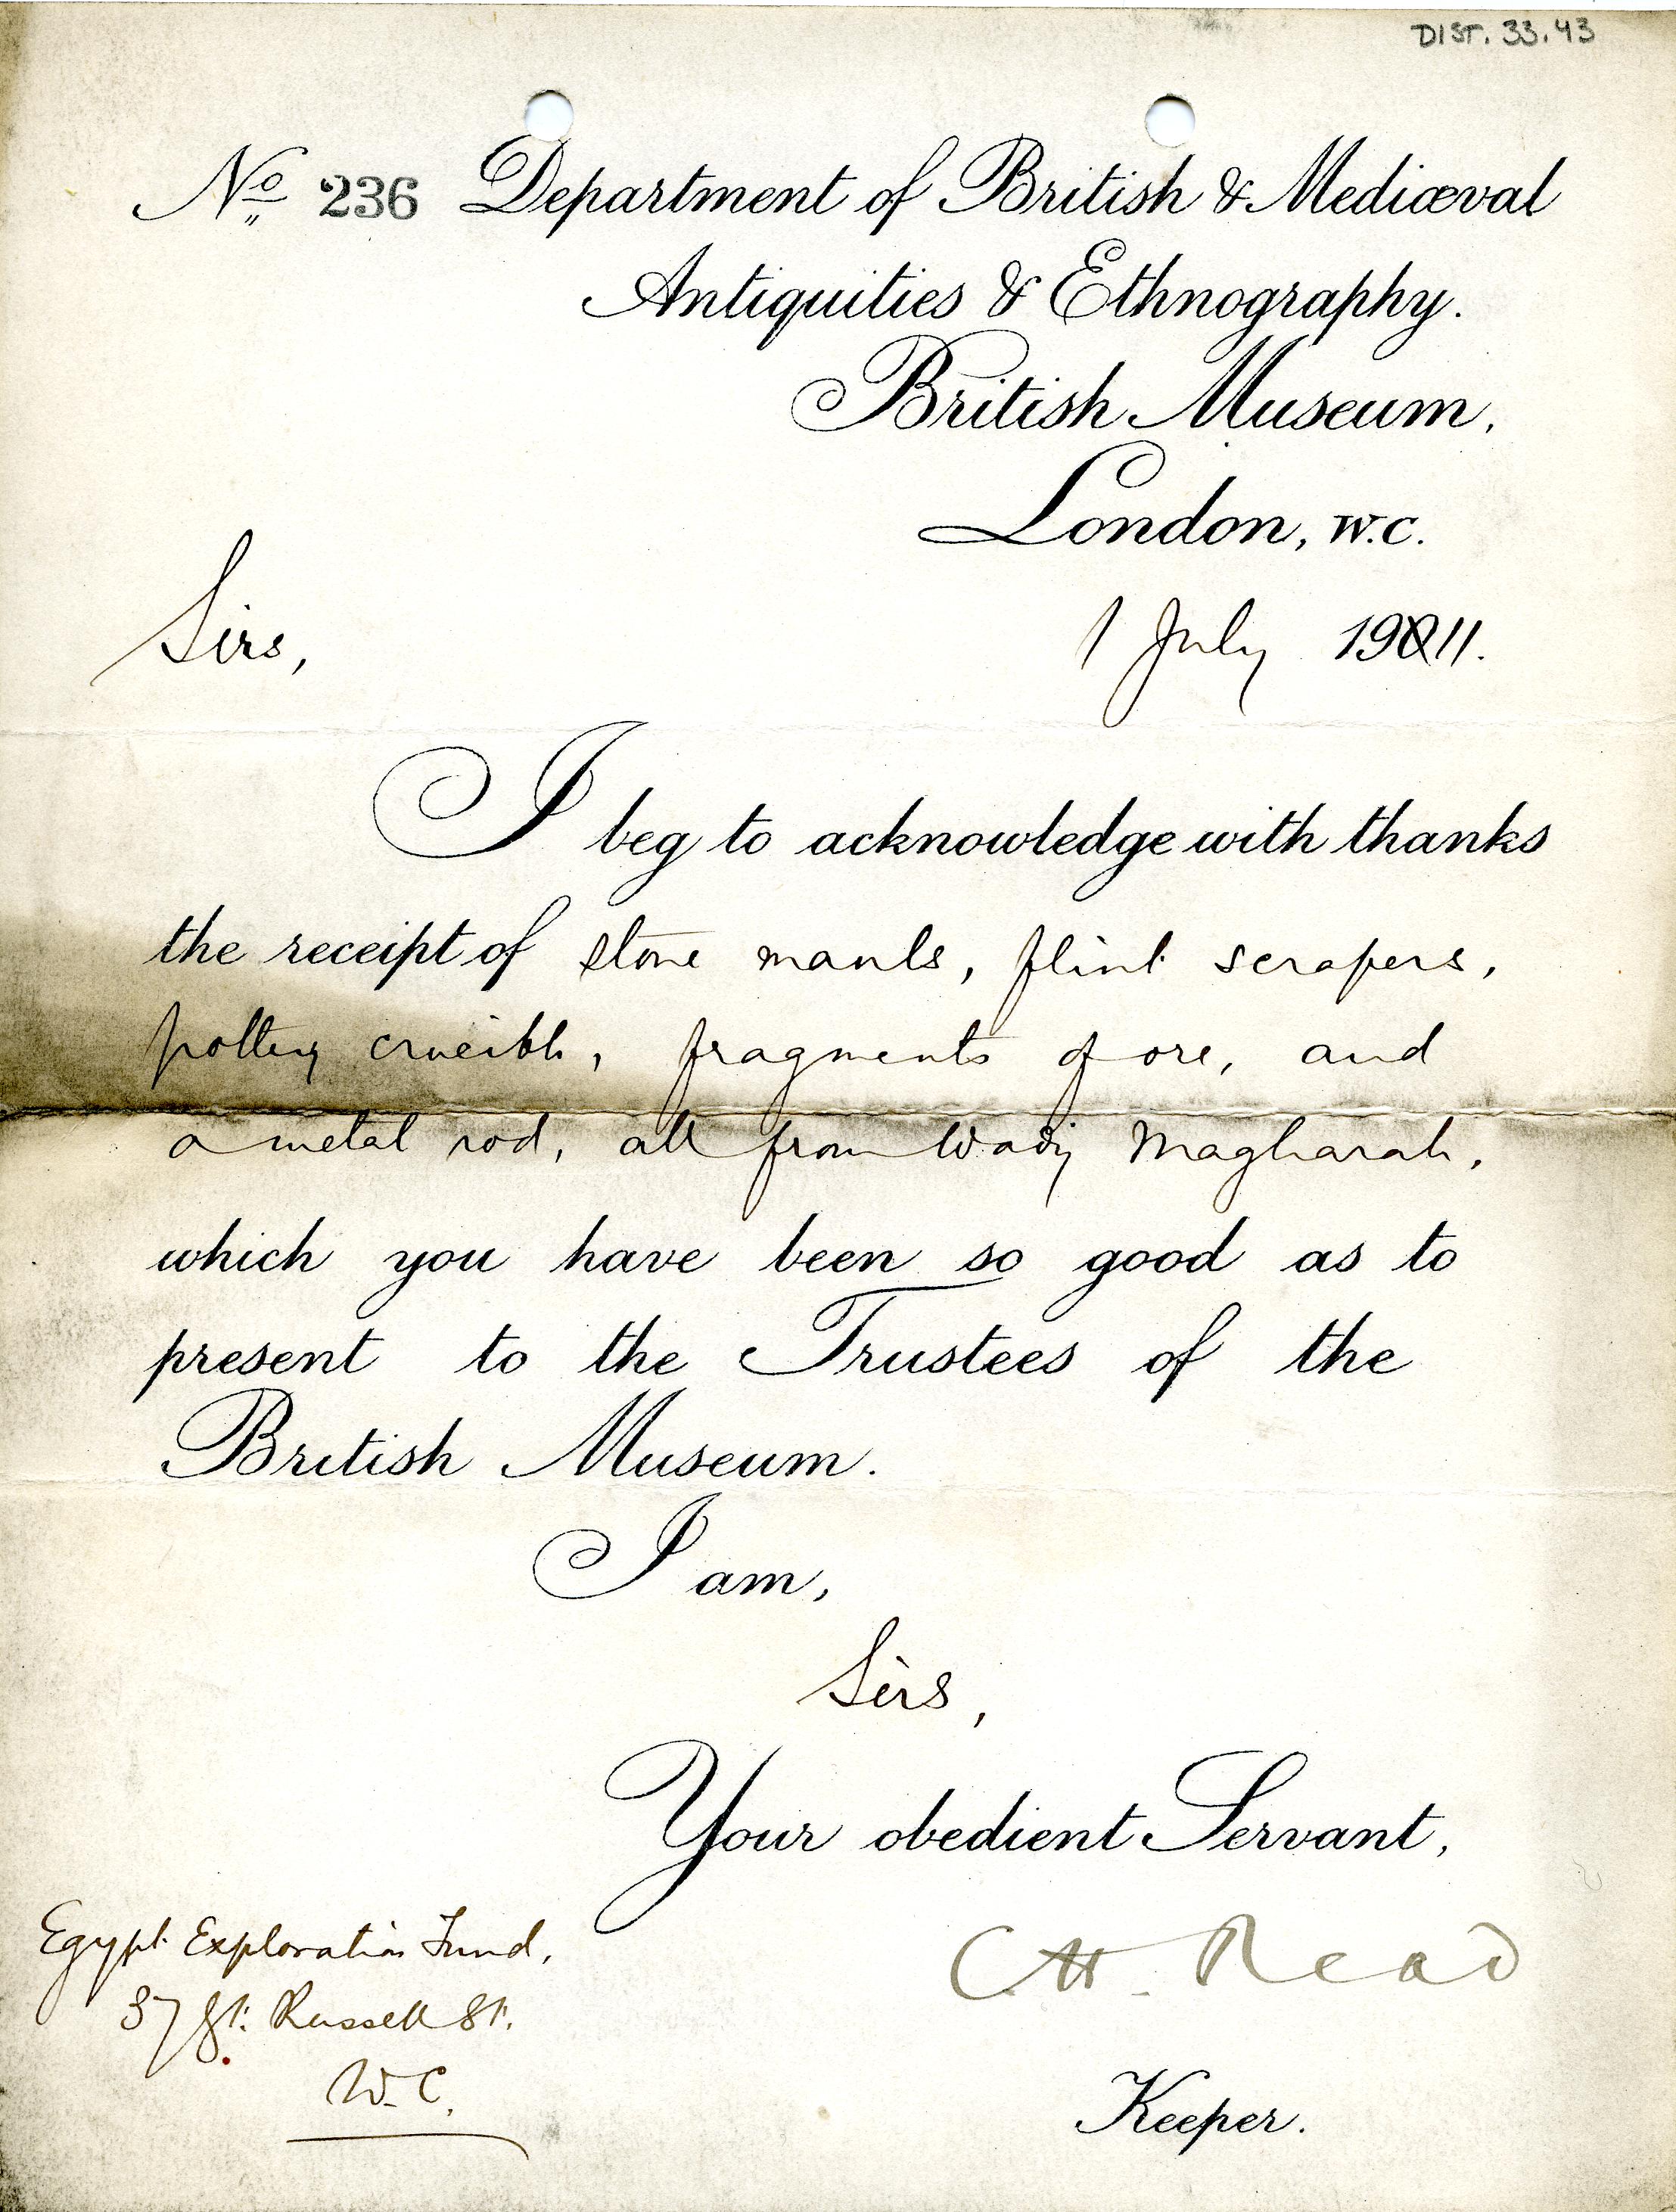 DIST. 33.43
No 236 Department of British & Mediæval
Antiquities & Ethnography.
British Museum,
London, W.C.
1 July 19011.
Sirs,
I beg to acknowledge with thanks
the receipt of stone mauls, flint scrapers,
pottery crucible, fragments of ore, and
a metal rod, all from Wady Magharah,
which you have been so good as to
present to the Trustees of the
British Museum.
I am,
Sirs,
Your obedient Servant,
C.H. Read
Keeper.
Egypt Exploration Fund,
37 Gt. Russell St.
W.C.